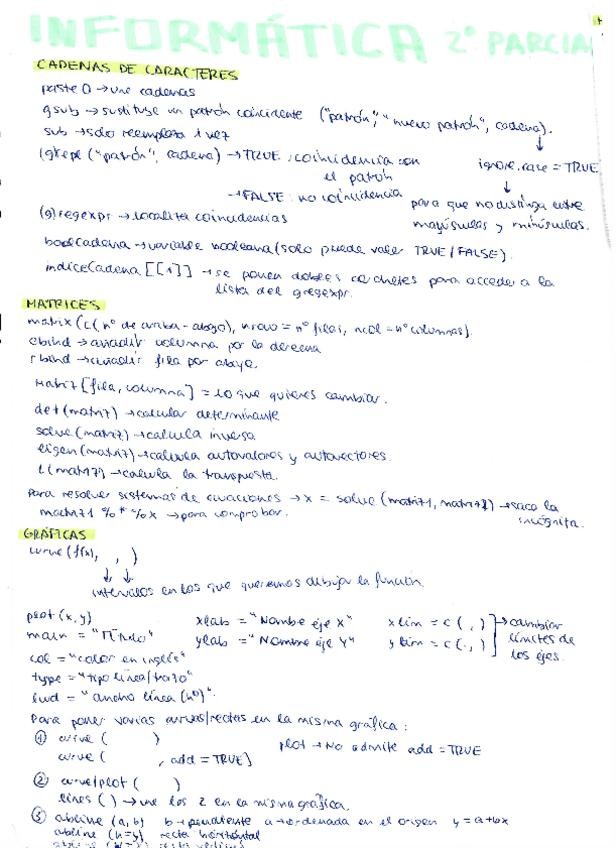 INFORMÁTICA 2º PARCIAL
CADENAS DE CARACTERES
paste () → une cadenas
gsub → sustituye un patrón coincidente ("patrón", "nuevo patrón", cadena).
sub → solo reemplaza 1 vez
(grepl ("patrón", cadena) → TRUE: coincidencia con el patrón
ignore.case = TRUE
→ FALSE: no coincidencia
para que no distinga entre mayúsculas y minúsculas.
(g)regexpr → localiza coincidencias
boolCadena → variable booleana (solo puede valer TRUE/FALSE).
indiceCadena [[1]] → se ponen dobles corchetes para acceder a la
lista del gregexpr.
MATRICES
matrix (c(nº de arriba-abajo), nrow = nº filas, ncol = nº columnas).
cbind → añadir columna por la derecha
rbind → añadir fila por abajo.
Matriz [fila, columna] = lo que quieres cambiar.
det (matriz) → calcular determinante
solve (matriz) → calcula inversa
eigen (matriz) → calcula autovalores y autovectores.
t (matriz) → calcula la transpuesta.
Para resolver sistemas de ecuaciones → x = solve (matriz1, matriz2) → saca la incógnita.
matriz1 %*% x → para comprobar.
GRÁFICAS
curve (f(x), , )
intervalos en los que queremos dibujar la función
plot (x, y)
xlab = "Nombre eje X"
xlim = c ( , )
→ cambiar límites de los ejes.
main = "Título"
ylab = "Nombre eje Y"
ylim = c ( , )
col = "color en inglés"
type = "tipo línea/trazo"
lwd = "ancho línea (nº)".
Para poner varias curvas/rectas en la misma gráfica:
① curve ( )
plot → No admite add = TRUE
curve ( , add = TRUE)
② curve/plot ( )
lines ( ) → une los 2 en la misma gráfica.
③ abline (a, b) b → pendiente a → ordenada en el origen y = a + bx
abline (h=y) recta horizontal